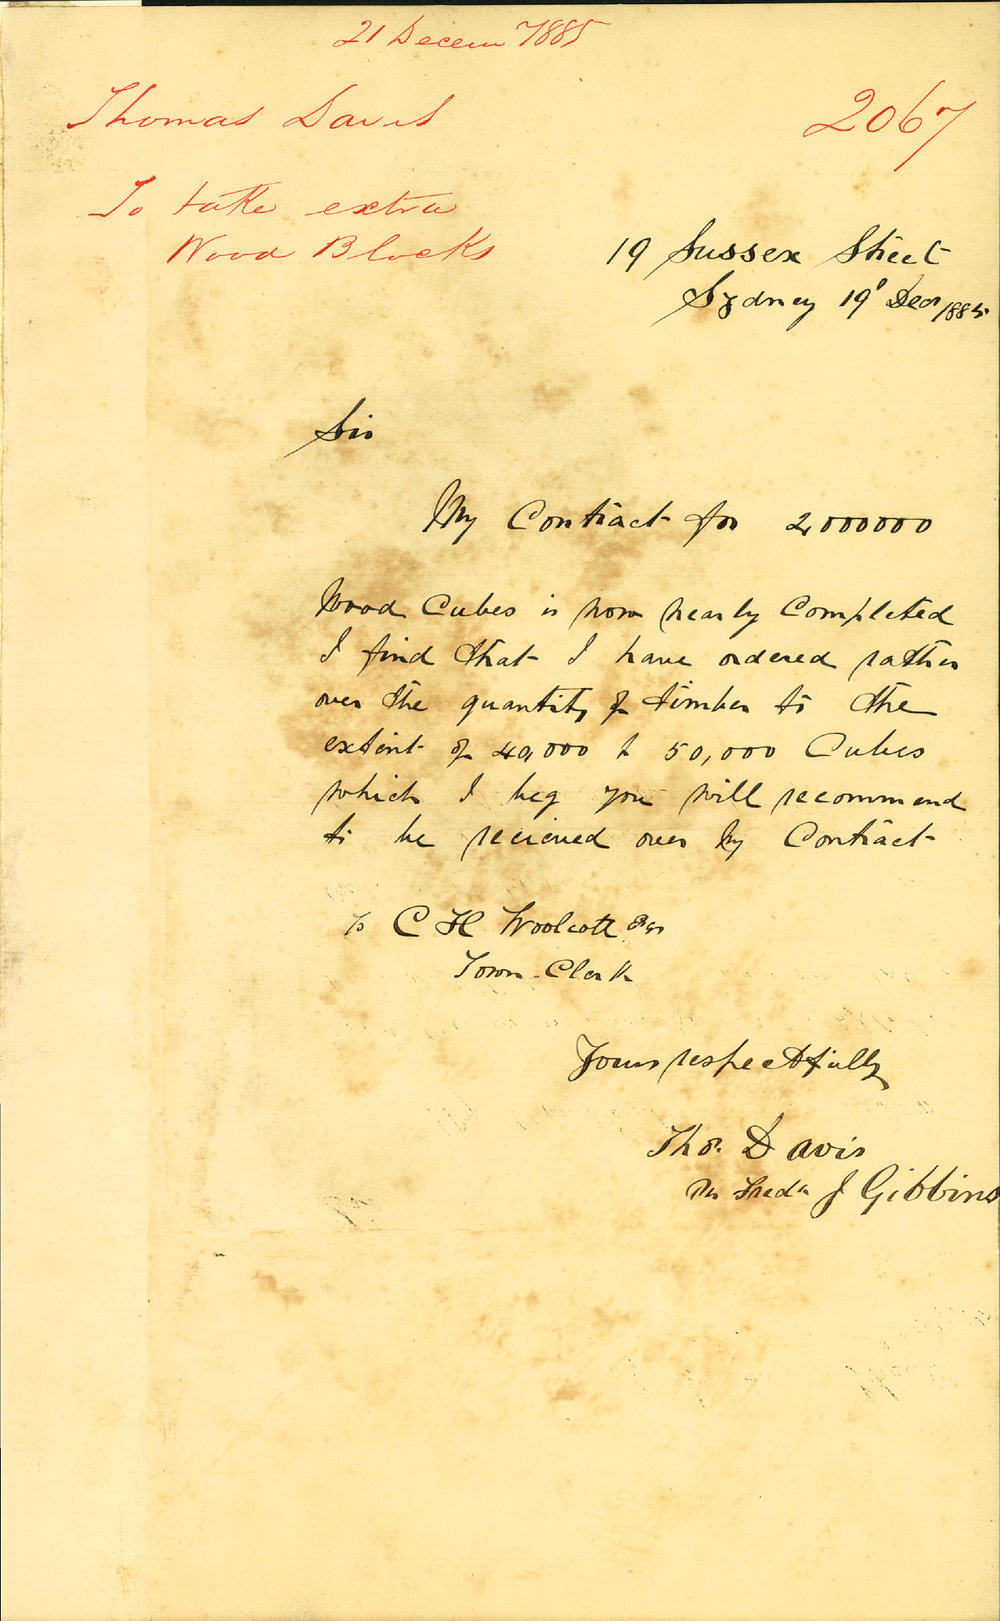 21 Decem 1885
Thomas Davis
2067
To take extra
Wood Blocks
19 Sussex Street
Sydney 19 Decr 1885
Sir
My Contract for 2,000000
Wood Cubes is now nearly Completed
I find that I have ordered rather
over the quantity of timber to the
extent of 40,000 to 50,000 Cubes
which I beg you will recommend
to be recieved over my Contract
To C H Woolcott Esqr
Town Clerk
Yours respectfully
Thos. Davis
Per Fredk J Gibbins